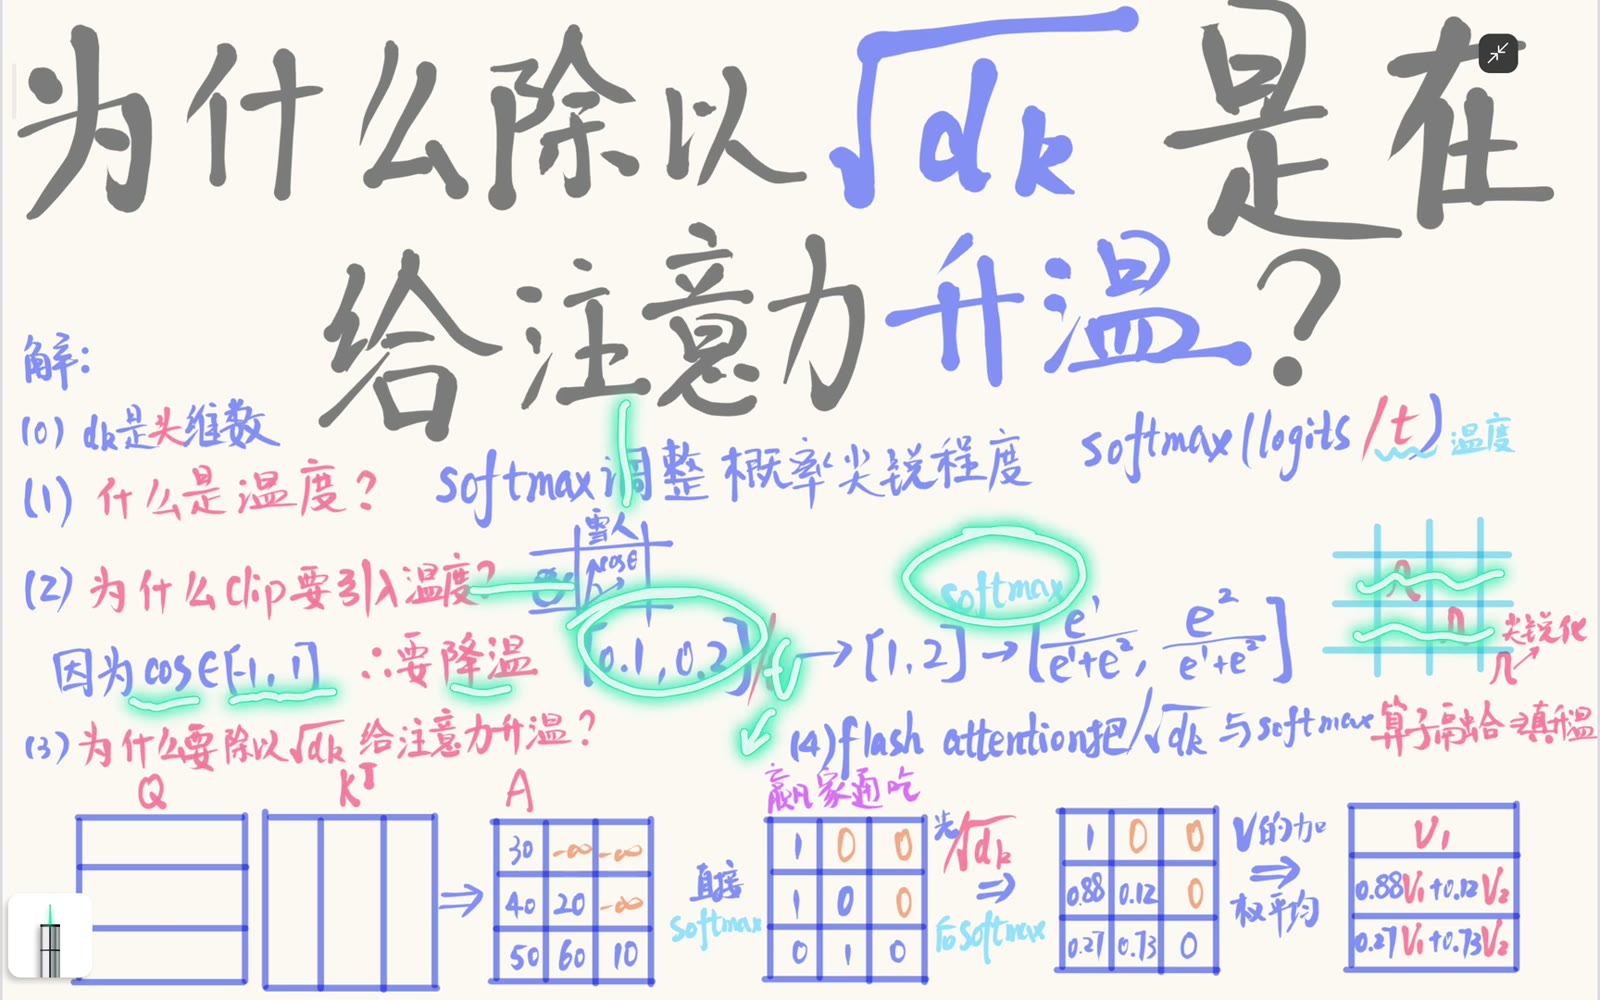 为什么除以√dk是在
给注意力升温?
解:
(0) dk是头维数
softmax(logits/t) 温度
(1) 什么是温度? softmax调整概率尖锐程度
雪人
cosθ
(2) 为什么Clip要引入温度?
softmax
因为cos∈[-1,1] ∴要降温 [0.1,0.2]/t→[1,2]→[e¹/(e¹+e²), e²/(e¹+e²)]
尖锐化
(3) 为什么要除以√dk给注意力升温?
(4) flash attention把/√dk与softmax算子融合
Q K^T A
赢家通吃
30 -∞ -∞
40 20 -∞
50 60 10
直接
softmax
1 0 0
1 0 0
0 1 0
先/√dk
后softmax
1 0 0
0.88 0.12 0
0.27 0.73 0
V的加
权平均
V₁
0.88V₁+0.12V₂
0.27V₁+0.73V₂